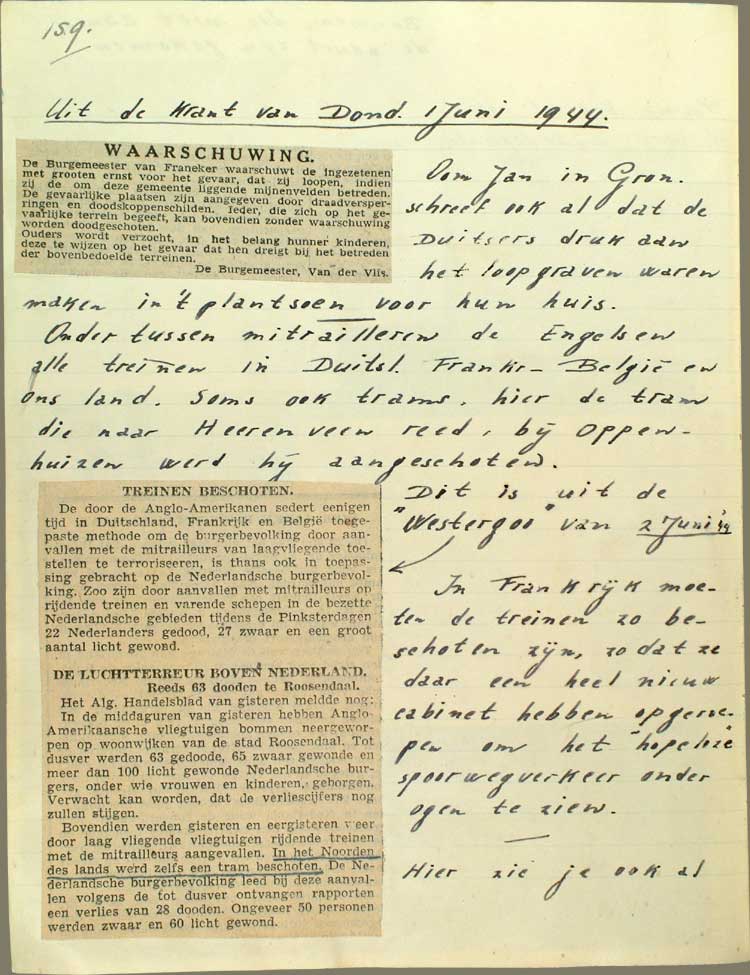 159.
Uit de Krant van Dond. 1 Juni 1944.
WAARSCHUWING.
De Burgemeester van Franeker waarschuwt de ingezetenen
met grooten ernst voor het gevaar, dat zij loopen, indien
zij de om deze gemeente liggende mijnenvelden betreden.
De gevaarlijke plaatsen zijn aangegeven door draadversper-
ringen en doodskoppenschilden. Ieder, die zich op het ge-
vaarlijke terrein begeeft, kan bovendien zonder waarschuwing
worden doodgeschoten.
Ouders wordt verzocht, in het belang hunner kinderen,
deze te wijzen op het gevaar dat hen dreigt bij het betreden
der bovenbedoelde terreinen.
De Burgemeester, Van der Vlis.
Oom Jan in Gron.
schreef ook al dat de
Duitsers druk aan
het loopgraven waren
maken in 't plantsoen voor hun huis.
Onder tussen mitrailleren de Engelsen
alle treinen in Duitsl. Frankr- België en
ons land. Soms ook trams, hier de tram
die naar Heerenveen reed, bij Oppen-
huizen werd hij aangeschoten.
TREINEN BESCHOTEN.
De door de Anglo-Amerikanen sedert eenigen
tijd in Duitschland, Frankrijk en België toege-
paste methode om de burgerbevolking door aan-
vallen met de mitrailleurs van laagvliegende toe-
stellen te terroriseeren, is thans ook in toepas-
sing gebracht op de Nederlandsche burgerbevol-
king. Zoo zijn door aanvallen met mitrailleurs op
rijdende treinen en varende schepen in de bezette
Nederlandsche gebieden tijdens de Pinksterdagen
22 Nederlanders gedood, 27 zwaar en een groot
aantal licht gewond.
DE LUCHTTERREUR BOVEN NEDERLAND.
Reeds 63 dooden te Roosendaal.
Het Alg. Handelsblad van gisteren meldde nog:
In de middaguren van gisteren hebben Anglo-
Amerikaansche vliegtuigen bommen neergewor-
pen op woonwijken van de stad Roosendaal. Tot
dusver werden 63 gedoode, 65 zwaar gewonde en
meer dan 100 licht gewonde Nederlandsche bur-
gers, onder wie vrouwen en kinderen, geborgen.
Verwacht kan worden, dat de verliescijfers nog
zullen stijgen.
Bovendien werden gisteren en eergisteren weer
door laag vliegende vliegtuigen rijdende treinen
met de mitrailleurs aangevallen. In het Noorden
des lands werd zelfs een tram beschoten. De Ne-
derlandsche burgerbevolking leed bij deze aanval-
len volgens de tot dusver ontvangen rapporten
een verlies van 28 dooden. Ongeveer 50 personen
werden zwaar en 60 licht gewond.
Dit is uit de
"Westergoo" van 2 Juni '44
In Frankrijk moe-
ten de treinen zo be-
schoten zijn, zodat ze
daar een heel nieuw
cabinet hebben opgeroe-
pen om het "hopeloze"
spoorwegverkeer onder
ogen te zien.
Hier zie je ook al